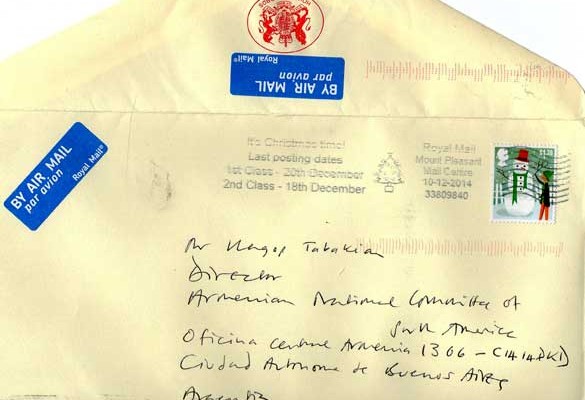 BY AIR MAIL
par avion
Royal Mail®
BY AIR MAIL
par avion
Royal Mail®
It's Christmas time!
Last posting dates
1st Class - 20th December
2nd Class - 18th December
Royal Mail
Mount Pleasant
Mail Centre
10-12-2014
33809840
Mr Hagop Tabakian
Director
Armenian National Committee of
South America
Oficina central Armenia 1306 - C1414DKD
Ciudad Autonoma de Buenos Aires
Argentin